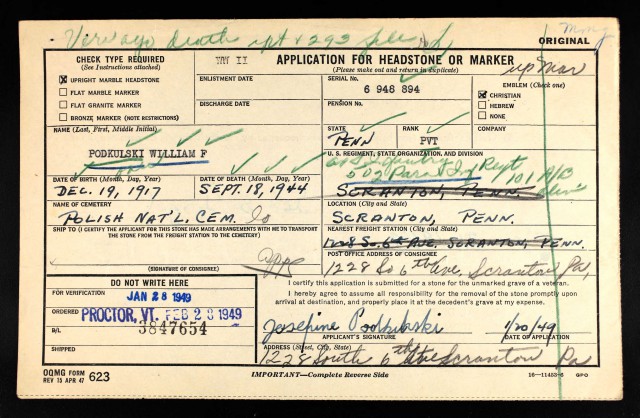 mmj
ORIGINAL
CHECK TYPE REQUIRED
(See Instructions attached)
WW II
APPLICATION FOR HEADSTONE OR MARKER
(Please make out and return in duplicate)
up Mar
UPRIGHT MARBLE HEADSTONE
FLAT MARBLE MARKER
FLAT GRANITE MARKER
BRONZE MARKER (NOTE RESTRICTIONS)
ENLISTMENT DATE
DISCHARGE DATE
SERIAL No.
6 948 894
PENSION No.
EMBLEM (Check one)
CHRISTIAN
HEBREW
NONE
NAME (Last, First, Middle Initial)
PODKULSKI WILLIAM F
STATE
PENN
RANK
PVT
COMPANY
U. S. REGIMENT, STATE ORGANIZATION, AND DIVISION
502 Regt
101 A/B
SCRANTON, PENN.
DATE OF BIRTH (Month, Day, Year)
DEC. 19, 1917
DATE OF DEATH (Month, Day, Year)
SEPT. 18, 1944
NAME OF CEMETERY
POLISH NAT'L. CEM.
LOCATION (City and State)
SCRANTON, PENN.
SHIP TO (I CERTIFY THE APPLICANT FOR THIS STONE HAS MADE ARRANGEMENTS WITH ME TO TRANSPORT
THE STONE FROM THE FREIGHT STATION TO THE CEMETERY)
NEAREST FREIGHT STATION (City and State)
1228 So. 6th AVE, SCRANTON, PENN.
POST OFFICE ADDRESS OF CONSIGNEE
1228 So 6th Ave, Scranton Pa,
(SIGNATURE OF CONSIGNEE)
DO NOT WRITE HERE
FOR VERIFICATION
JAN 28 1949
ORDERED
PROCTOR, VT. FEB 28 1949
B/L
3847654
SHIPPED
I certify this application is submitted for a stone for the unmarked grave of a veteran.
I hereby agree to assume all responsibility for the removal of the stone promptly upon
arrival at destination, and properly place it at the decedent's grave at my expense.
Josephine Podkulski
1/20/49
APPLICANT'S SIGNATURE
DATE OF APPLICATION
ADDRESS (Street, City, State)
1228 South 6th Ave Scranton Pa
OQMG FORM
REV 15 APR 47
623
IMPORTANT—Complete Reverse Side
16—11453-6 GPO